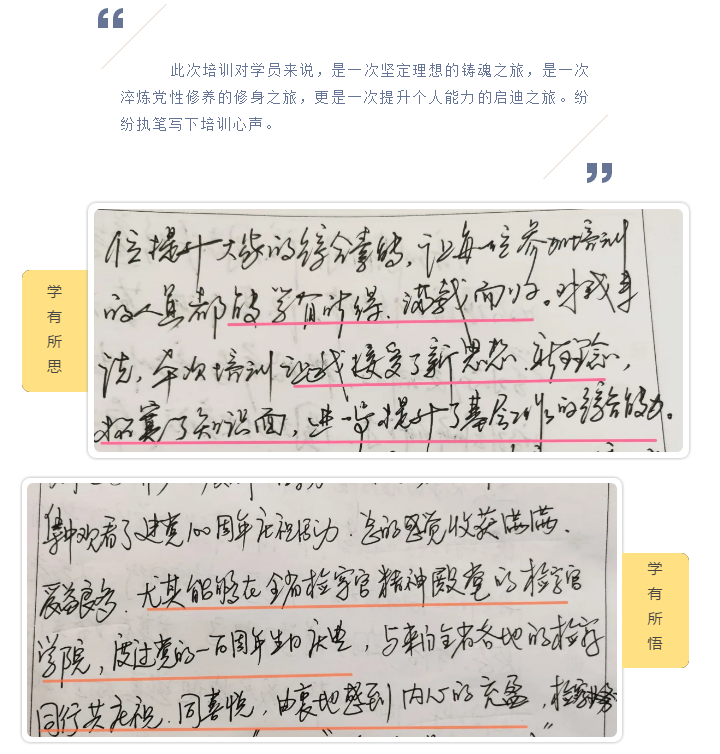 此次培训对学员来说，是一次坚定理想的铸魂之旅，是一次
淬炼党性修养的修身之旅，更是一次提升个人能力的启迪之旅。纷
纷执笔写下培训心声。
学有所思
位提升大家的综合素能，让每一位参加培训
的人员都能学有所得、满载而归。对我来
说，本次培训让我接受了新思想、新理念，
拓宽了知识面，进一步提升了基层工作的综合能力。
集中观看了建党100周年庆祝活动，总的感觉收获满满、
受益良多，尤其能够在全省检察官精神殿堂的检察官
学院，度过党的一百周年生日庆典，与来自全省各地的检察
同行共庆祝、同喜悦，由衷地感到内心的充盈，检察业务
学有所悟